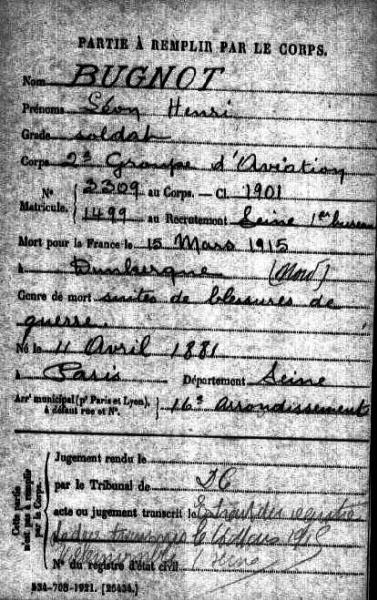 PARTIE À REMPLIR PAR LE CORPS.
Nom BUGNOT
Prénoms Léon Henri
Grade soldat
Corps 2e Groupe d'Aviation
No 2309 au Corps. — Cl. 1901
Matricule. 1499 au Recrutement Seine 1er bureau
Mort pour la France le 15 Mars 1915
à Dunkerque (Nord)
Genre de mort suites de blessures de
guerre.
Né le 11 Avril 1881
à Paris Département Seine
Arrt municipal (pr Paris et Lyon), à défaut rue et No. 16e arrondissement
Cette partie n'est pas à remplir par le Corps.
Jugement rendu le
par le Tribunal de
acte ou jugement transcrit le Extrait des
No du registre d'état civil
534-708-1921. [26434.]